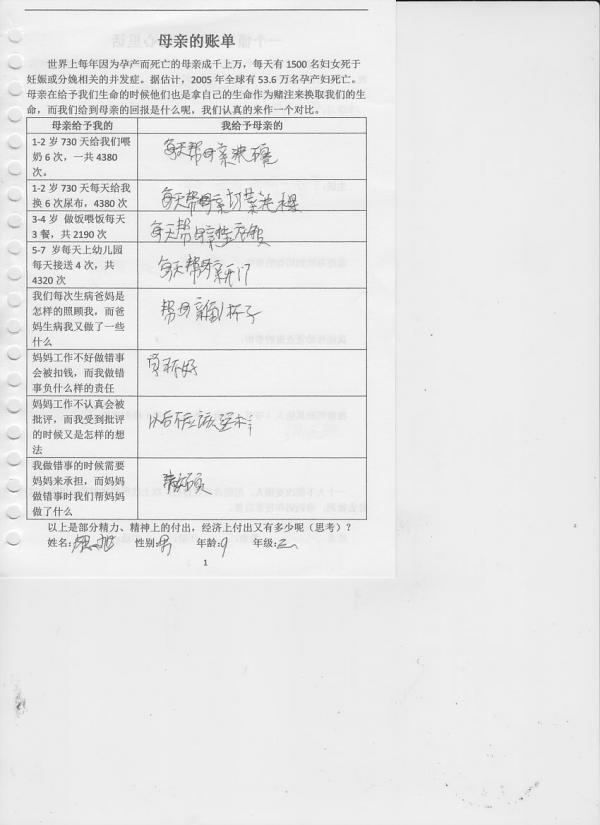 母亲的账单
世界上每年因为孕产而死亡的母亲成千上万，每天有 1500 名妇女死于
妊娠或分娩相关的并发症。据估计，2005 年全球有 53.6 万名孕产妇死亡。
母亲在给予我们生命的时候他们也是拿自己的生命作为赌注来换取我们的生
命，而我们给到母亲的回报是什么呢，我们认真的来作一个对比。
母亲给予我的 我给予母亲的
1-2 岁 730 天给我们喂
奶 6 次，一共 4380
次。
每天帮母亲洗碗
1-2 岁 730 天每天给我
换 6 次尿布，4380 次
每天帮母亲切菜洗
3-4 岁 做饭喂饭每天
3 餐，共 2190 次
每天帮母亲
5-7 岁每天上幼儿园
每天接送 4 次，共
4320 次
每天帮母亲开门
我们每次生病爸妈是
怎样的照顾我，而爸
妈生病我又做了一些
什么
帮母亲倒杯子
妈妈工作不好做错事
会被扣钱，而我做错
事负什么样的责任
妈妈工作不认真会被
批评，而我受到批评
的时候又是怎样的想
法
以后不应该
我做错事的时候需要
妈妈来承担，而妈妈
做错事时我们帮妈妈
做了什么
以上是部分精力、精神上的付出，经济上付出又有多少呢（思考）？
姓名: 性别:男 年龄:9 年级:三
1